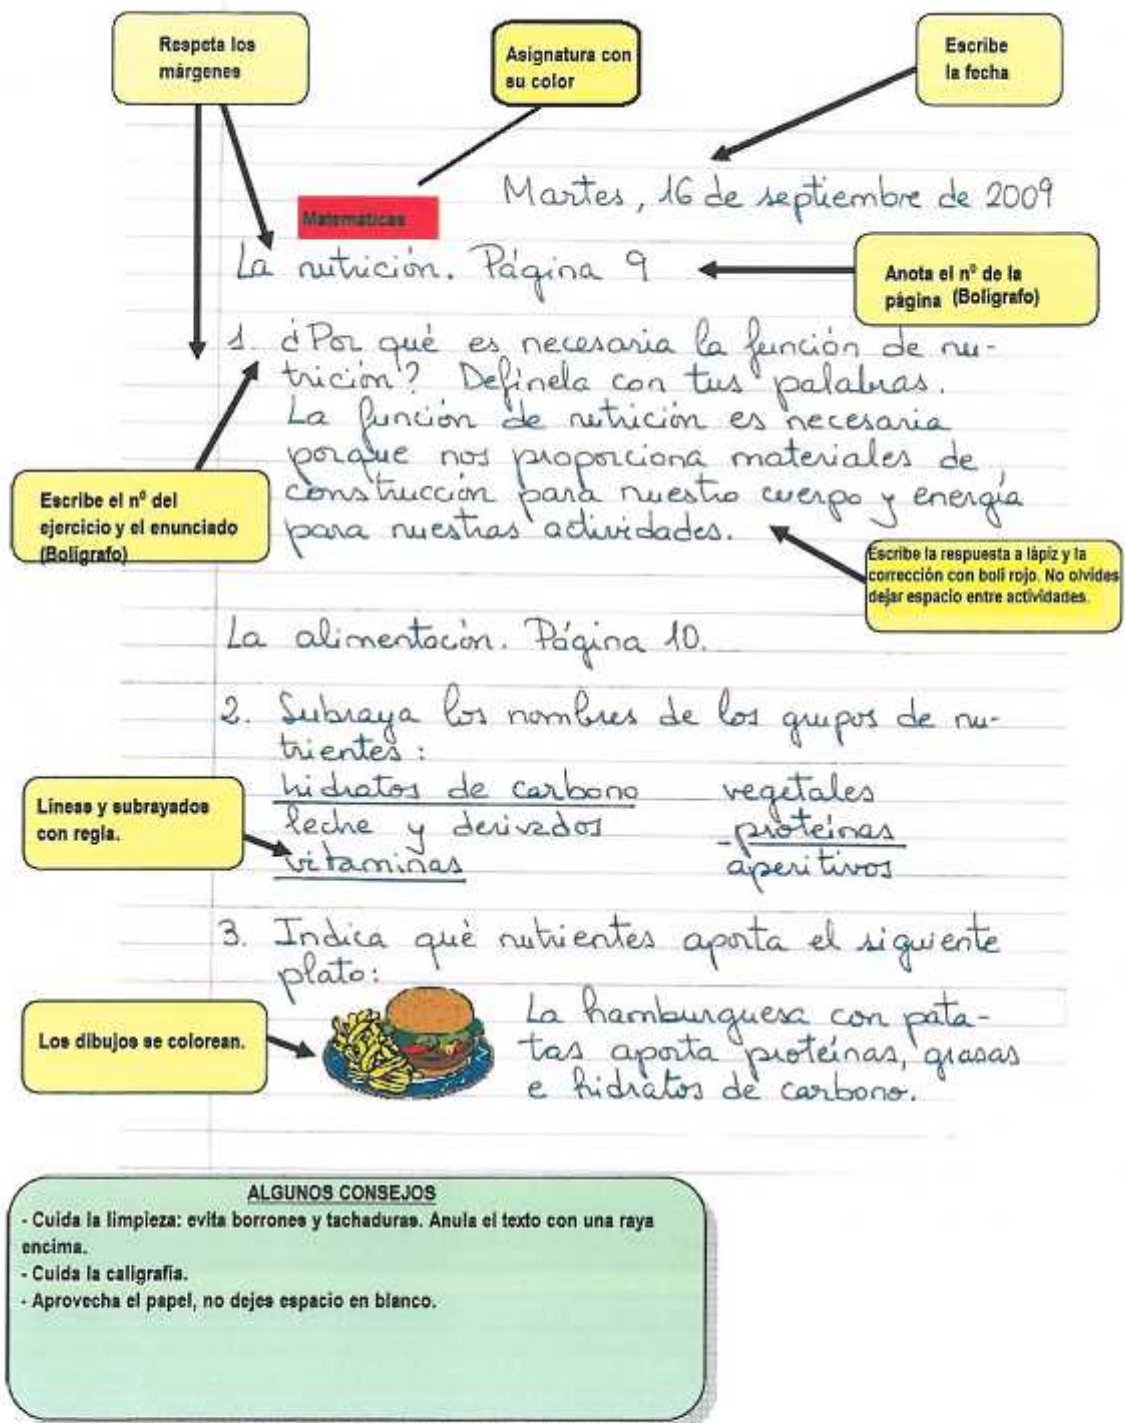 Respeta los
márgenes
Asignatura con
su color
Escribe
la fecha
Martes, 16 de septiembre de 2009
Matemáticas
La nutrición. Página 9
Anota el nº de la
página (Bolígrafo)
1. ¿Por qué es necesaria la función de nu-
trición? Defínela con tus palabras.
La función de nutrición es necesaria
porque nos proporciona materiales de
construcción para nuestro cuerpo y energía
para nuestras actividades.
Escribe el nº del
ejercicio y el enunciado
(Bolígrafo)
Escribe la respuesta a lápiz y la
corrección con boli rojo. No olvides
dejar espacio entre actividades.
La alimentación. Página 10.
2. Subraya los nombres de los grupos de nu-
trientes:
hidratos de carbono vegetales
leche y derivados proteínas
vitaminas aperitivos
Líneas y subrayados
con regla.
3. Indica qué nutrientes aporta el siguiente
plato:
La hamburguesa con pata-
tas aporta proteínas, grasas
e hidratos de carbono.
Los dibujos se colorean.
ALGUNOS CONSEJOS
- Cuida la limpieza: evita borrones y tachaduras. Anula el texto con una raya
encima.
- Cuida la caligrafía.
- Aprovecha el papel, no dejes espacio en blanco.